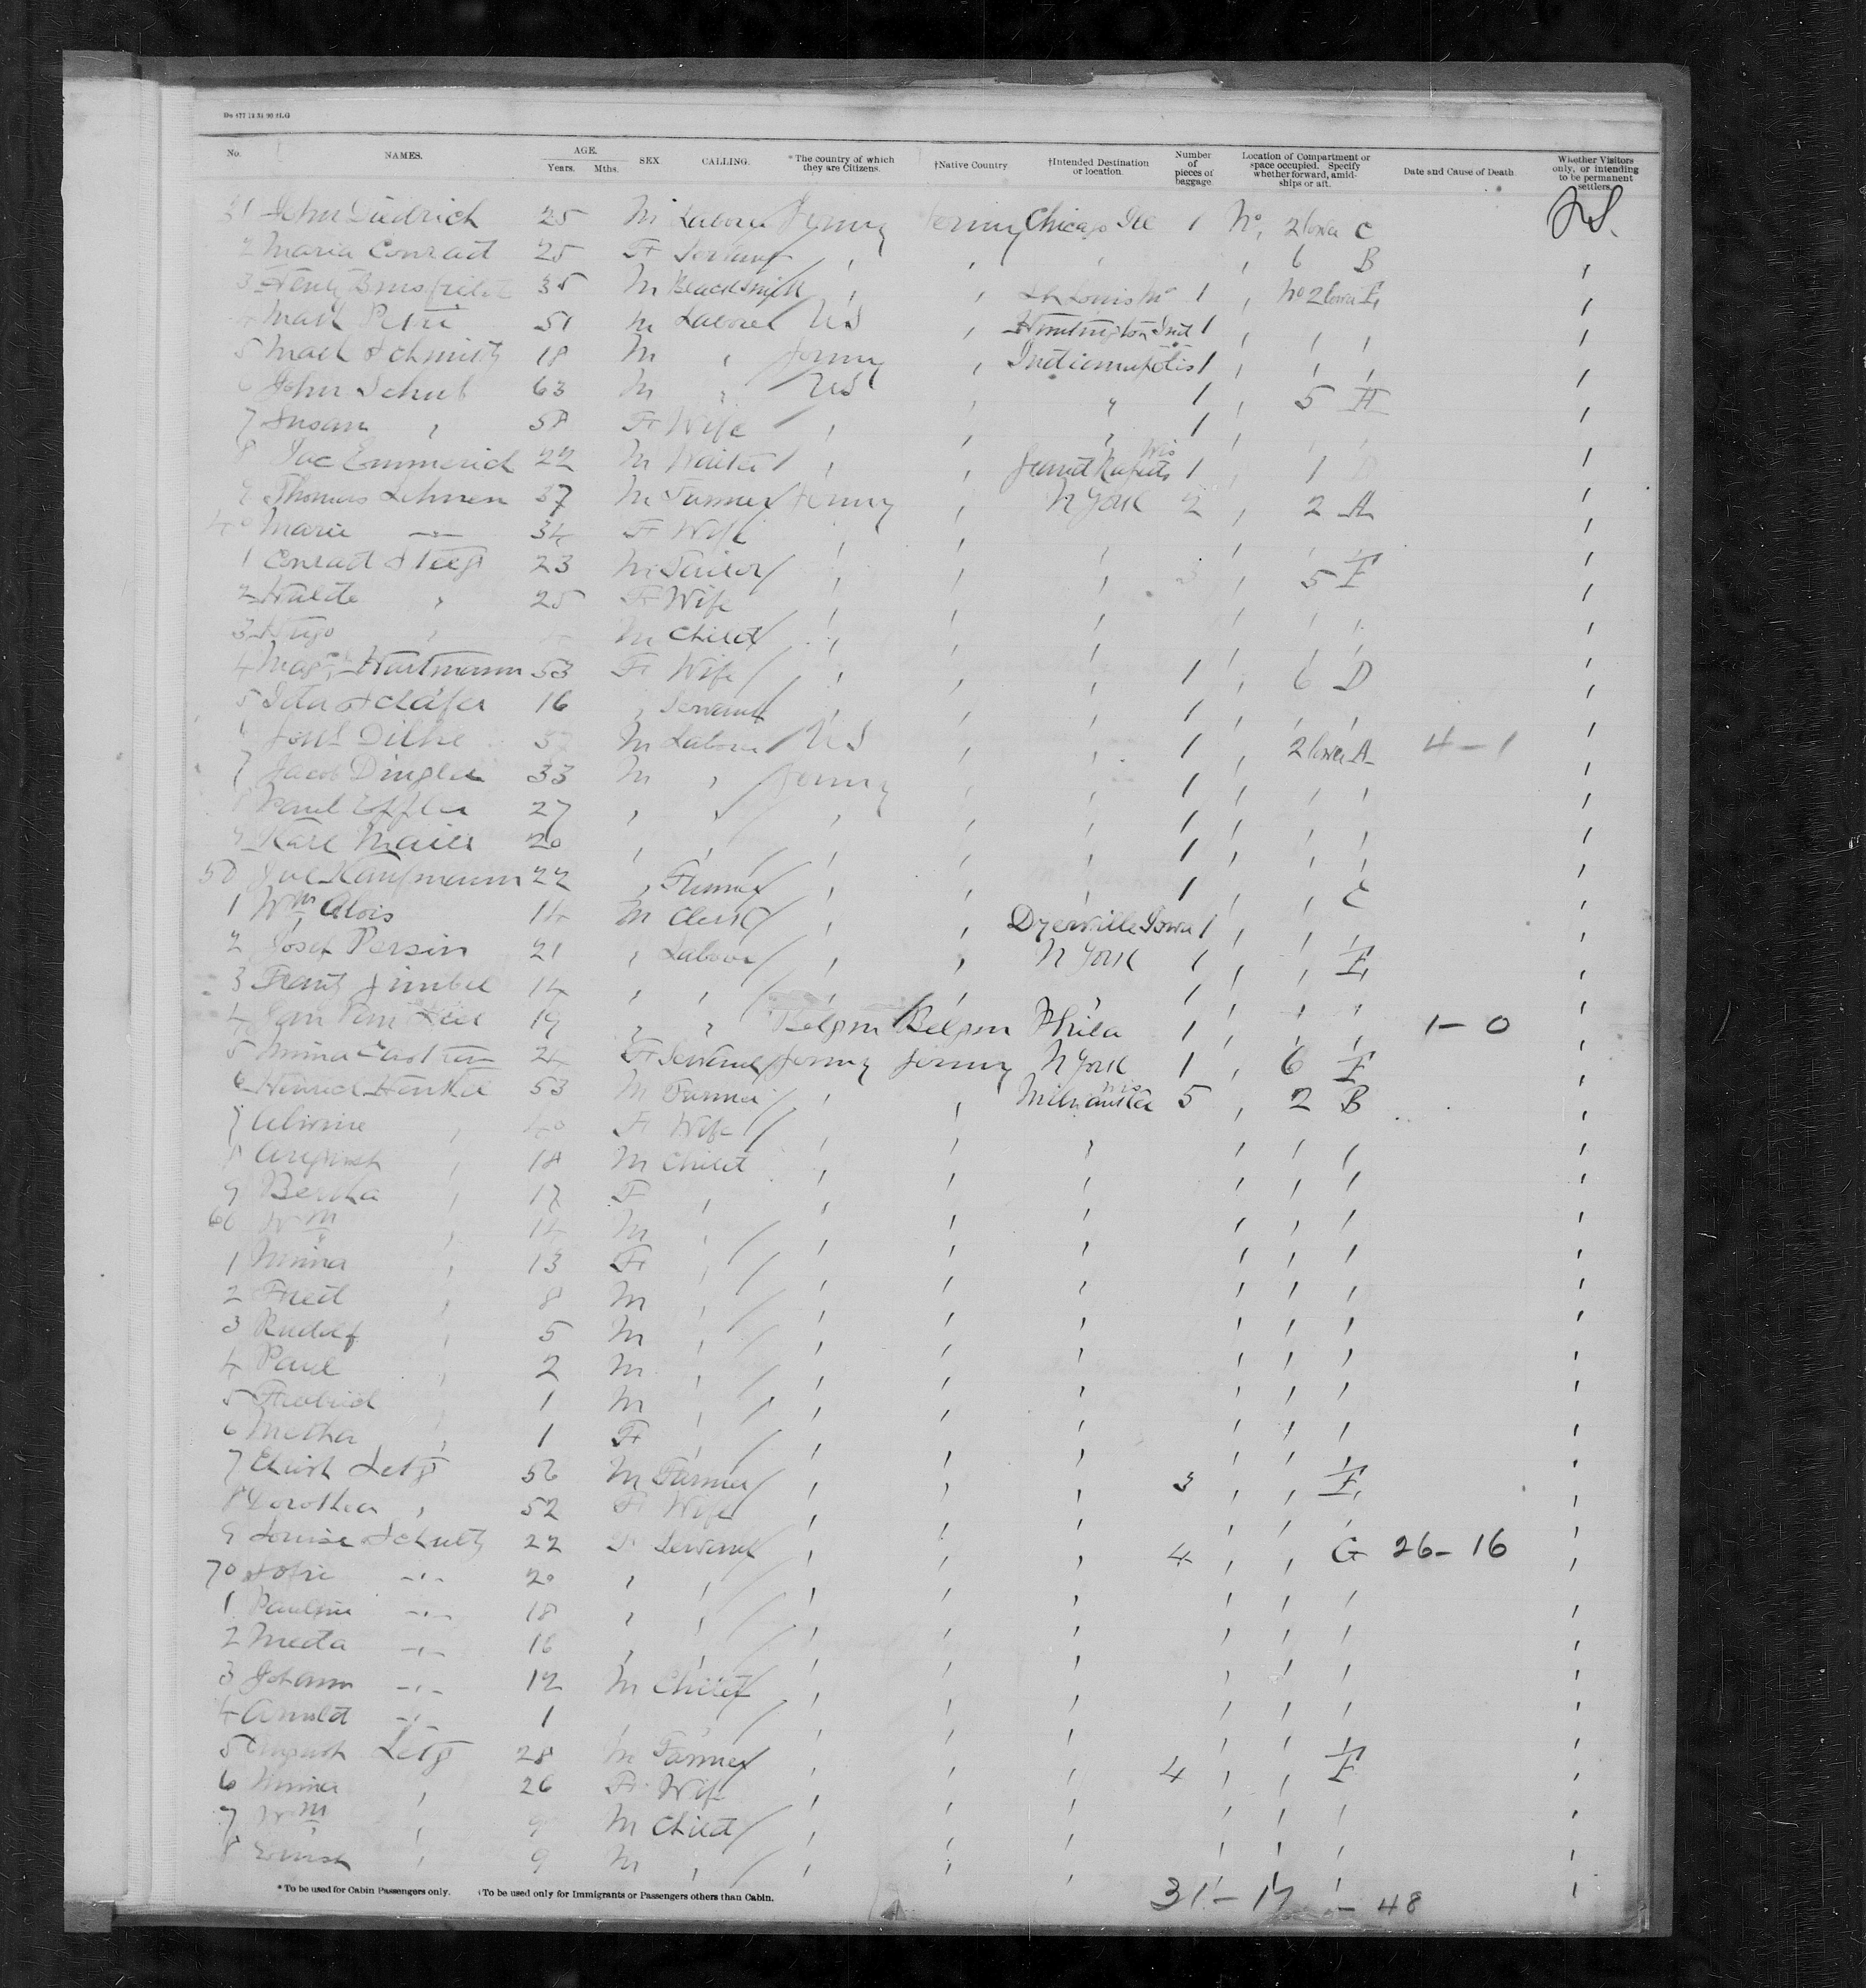 No. NAMES. AGE. Years. Mths. SEX. CALLING. *The country of which they are Citizens. †Native Country †Intended Destination or location. Number of pieces of baggage Location of Compartment or space occupied. Specify whether forward, amidships or aft. Date and Cause of Death. Whether Visitors only, or intending to be permanent settlers.
31 John Diedrich 25 M Laborer Germy Germy Chicago Ill 1 No, 2 lower C
2 Maria Conrad 25 F Servant , , , , 6 B ,
3 Henry 35 M Blacksmith , , St Louis Mo 1 , No 2 lower E ,
Petri 51 M Laborer US , Huntington Ind 1 , , , ,
5 Schmitz 18 M , Germy , Indianapolis 1 , , , ,
6 John Schub 63 M , US , " 1 , 5 H ,
7 Susan , 58 F Wife , , , 1 , , , ,
8 Jac Emmerich 22 M Waiter , , Grand Rapids Wis 1 , 1 D ,
9 Thomas Lehnen 37 M Farmer Germy , N York 2 , 2 A ,
40 Marie -"- 34 F Wife , , , , , , ,
1 Conrad Steeg 23 M Tailor , , , 3 , 5 F ,
2 25 F Wife , , , , , , ,
3 Hugo , M Child , , , , , , ,
4 Magd. Hartmann 53 F Wife , , , 1 , 6 D ,
5 Schäfer 16 , Servant , , , 1 , , , ,
6 37 M Laborer US , , 1 , 2 lower A 4-1 ,
7 Jacob Dingler 33 M , Germy , , 1 , , , ,
8 Paul Effler 27 , , , , , 1 , , , ,
9 Karl Maier 20 , , , , , 1 , , , ,
50 Jul Kaufmann 22 , Farmer , , , 1 , , C ,
1 Wm Alois 14 M Clerk , , Dyersville Iowa 1 , , , ,
2 Josef Persin 21 , Labour , , N York 1 , , E ,
3 Franz Gimbel 14 , , , , , 1 , , , ,
4 19 , , Belgm Belgm Phila 1 , , , 1-0 ,
5 Minna F Servant Germy Germy N York 1 , 6 F ,
6 Heinrich Henkel 53 M Farmer , , Milwaukee Wis 5 , 2 B ,
7 , 40 F Wife , , , , , , ,
8 August , 18 M Child , , , , , , ,
9 Bertha , 17 F , , , , , , , ,
60 Wm , 14 M , , , , , , , ,
1 Minna , 13 F , , , , , , , ,
2 Fried , 8 M , , , , , , , ,
3 Rudolf , 5 M , , , , , , , ,
4 Paul , 2 M , , , , , , , ,
5 , 1 M , , , , , , , ,
6 Metha , 1 F , , , , , , , ,
7 Christ 56 M Farmer , , , 3 , , F ,
8 Dorothea , 52 F Wife , , , , , , ,
9 Louise Schultz 22 F Servant , , , 4 , , G 26-16 ,
70 Sofie -"- 20 , , , , , , , , ,
1 Pauline -"- 18 , , , , , , , , ,
2 Meta -"- 16 , , , , , , , , ,
3 Johann -"- 12 M Child , , , , , , ,
4 Arnold -"- 1 , , , , , , , , ,
5 August 28 M Farmer , , , 4 , , F ,
6 Minna , 26 F Wife , , , , , , ,
7 Wm , 9 M Child , , , , , , ,
8 , 9 M , , , , , , , ,
*To be used for Cabin Passengers only. †To be used only for Immigrants or Passengers others than Cabin.
31-17 - 48